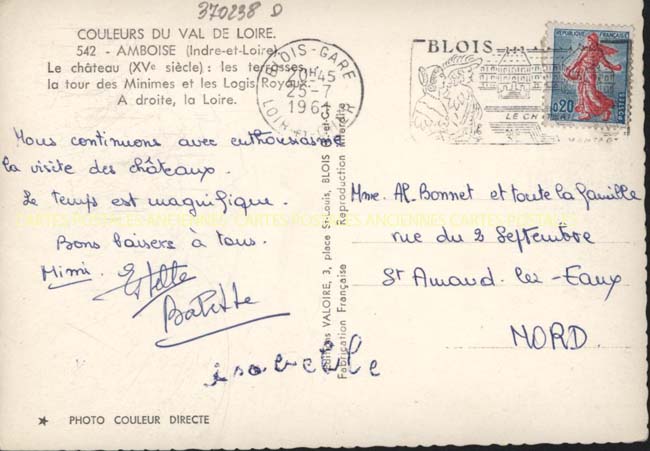 370238 D
COULEURS DU VAL DE LOIRE.
542 - AMBOISE (Indre-et-Loire)
Le château (XVe siècle) : les terrasses,
la tour des Minimes et les Logis Royaux.
A droite, la Loire.
BLOIS-GARE
20H45
25-7
LOIR-ET-CHER
BLOIS
LE CH
REPUBLIQUE FRANÇAISE
0,20
POSTES
Nous continuons avec enthousiasme
la visite des châteaux.
Le temps est magnifique.
Bons baisers à tous.
Mimi. Estelle
isabelle
Mme Al. Bonnet et toute la famille
rue du 2 Septembre
St Amand-les-Eaux
NORD.
Editions VALOIRE, 3, place St-Louis, BLOIS (L.-et-C.)
Fabrication Française Reproduction interdite
CARTES POSTALES ANCIENNES CARTES POSTALES ANCIENNES CARTES POSTALES
★ PHOTO COULEUR DIRECTE